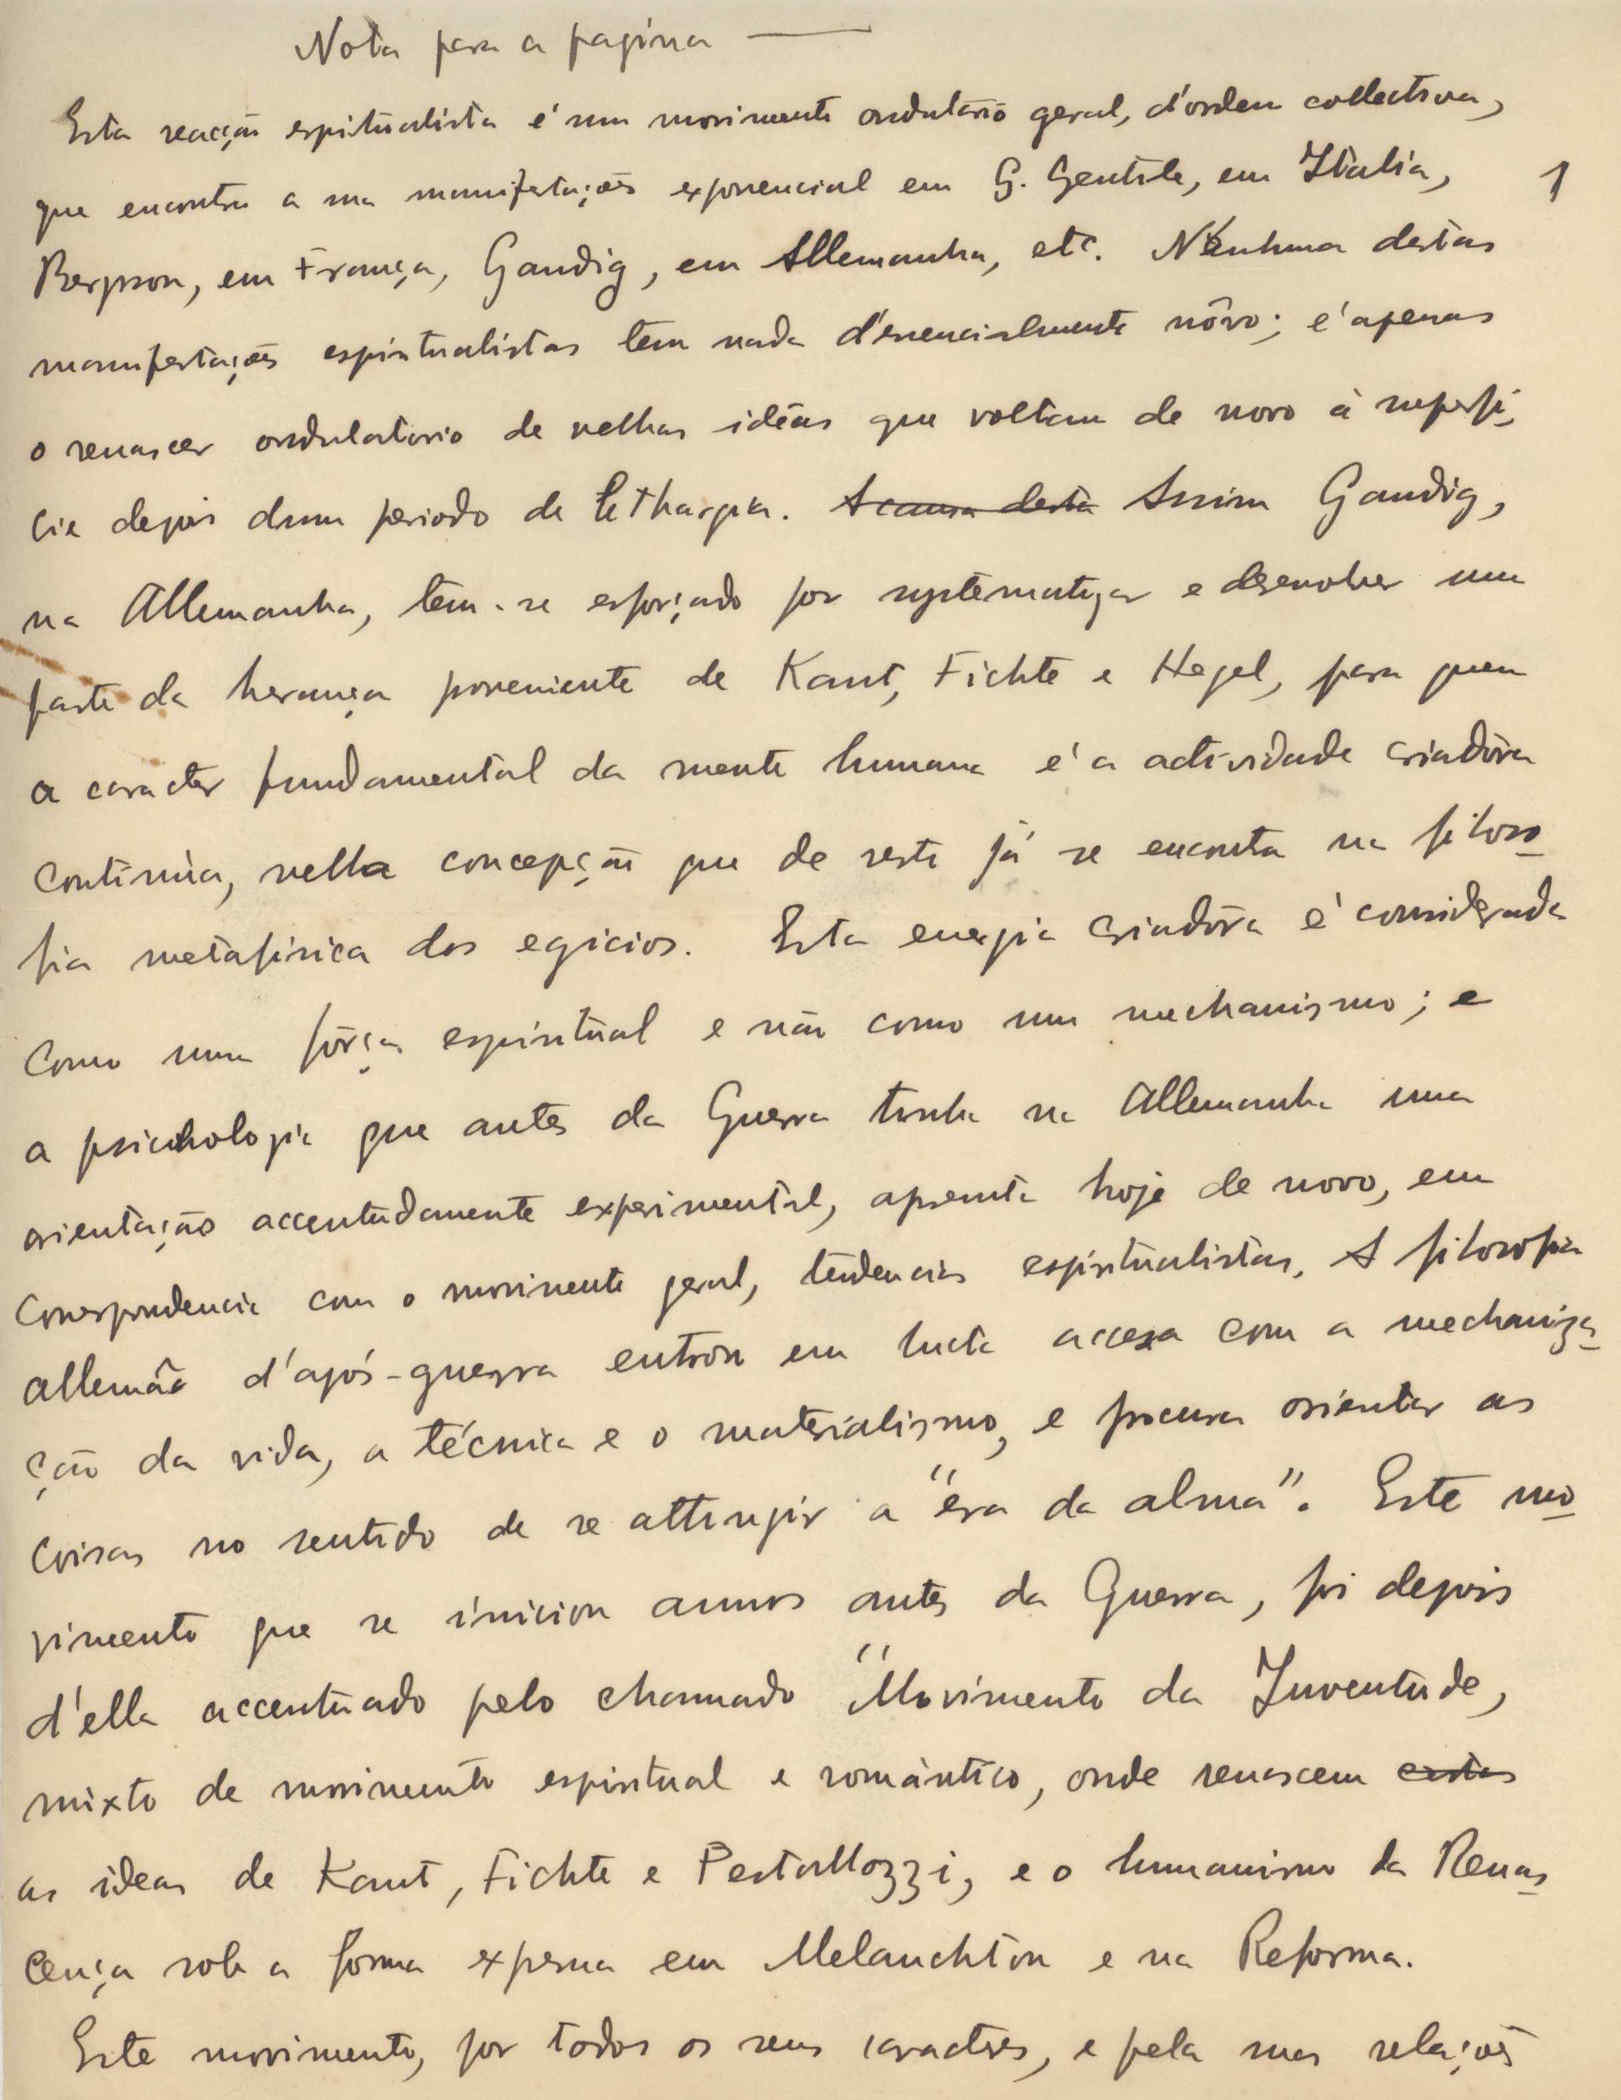 Nota para a pagina ——
Esta reacção espiritualista é um movimento ondulatorio geral, d'ordem collectiva,
que encontra a sua manifestações exponencial em G. Gentile, em Italia, 1
Bergson, em França, Gaudig, em Allemanha, etc. Nenhuma destas
manifestações espiritualistas tem nada d'esencialmente nôvo; e' apenas
o renascer ondulatorio de velhas idéas que voltam de novo à superfi-
cie depois dum periodo de lethargia. A causa desta Assim Gaudig,
na Allemanha, tem-se esforçado por systematizar e desenvolver uma
parte da herança proveniente de Kant, Fichte e Hegel, para quem
a caracter fundamental da mente humana e' a actividade criadôra
continùa, velha concepção que de resto já se encontra na filoso-
fia metafisica dos egicios. Esta energia criadôra e' considerada
como uma fôrça espiritual e não como um mechanismo; e
a psichologia que antes da Guerra tinha na Allemanha uma
orientação accentudamente experimental, apresenta hoje de novo, em
correspondencia com o movimento geral, tendencias espiritualistas. A filosofia
allemãa d'após-guerra entrou em lucta accesa com a mechaniza-
ção da vida, a técnica e o materialismo, e procura orientar as
coisas no sentido de se attingir a "era da alma". Este mo-
vimento que se iniciou annos antes da Guerra, foi depois
d'ella accentuado pelo chamado "Movimento da Juventude,
mixto de movimento espiritual e romàntico, onde renascem estas
as ideas de Kant, Fichte e Pestallozzi, e o humanismo da Renas-
cença sob a forma expressa em Melanchton e na Reforma.
Este movimento, por todos os seus caractres, e pela suas relações